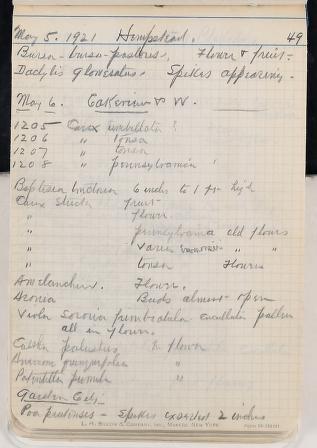 May 5. 1921 Hempstead. 49
Bursa-bursa-pastoris, Flower & fruit.
Dactylis glomerata, Spikes appearing.
May 6. & W.
1205 Carex umbellata ?
1206 " tonsa
1207 " tonsa
1208 " pennsylvanica
Baptisia tinctoria 6 inches to 1 ft. high
Carex stricta fruit
" flower.
" pennsylvanica old flowers
" varia " "
" tonsa Flowers
Amelanchier. Flower.
Aronia Buds almost open
Viola sororia fimbriatula cucullata pallens
all in flower.
Caltha palustris In flower
Anemone quinquefolia "
Potentilla pumila "
Garden City,
Poa pratensis - spikes exserted 2 inches